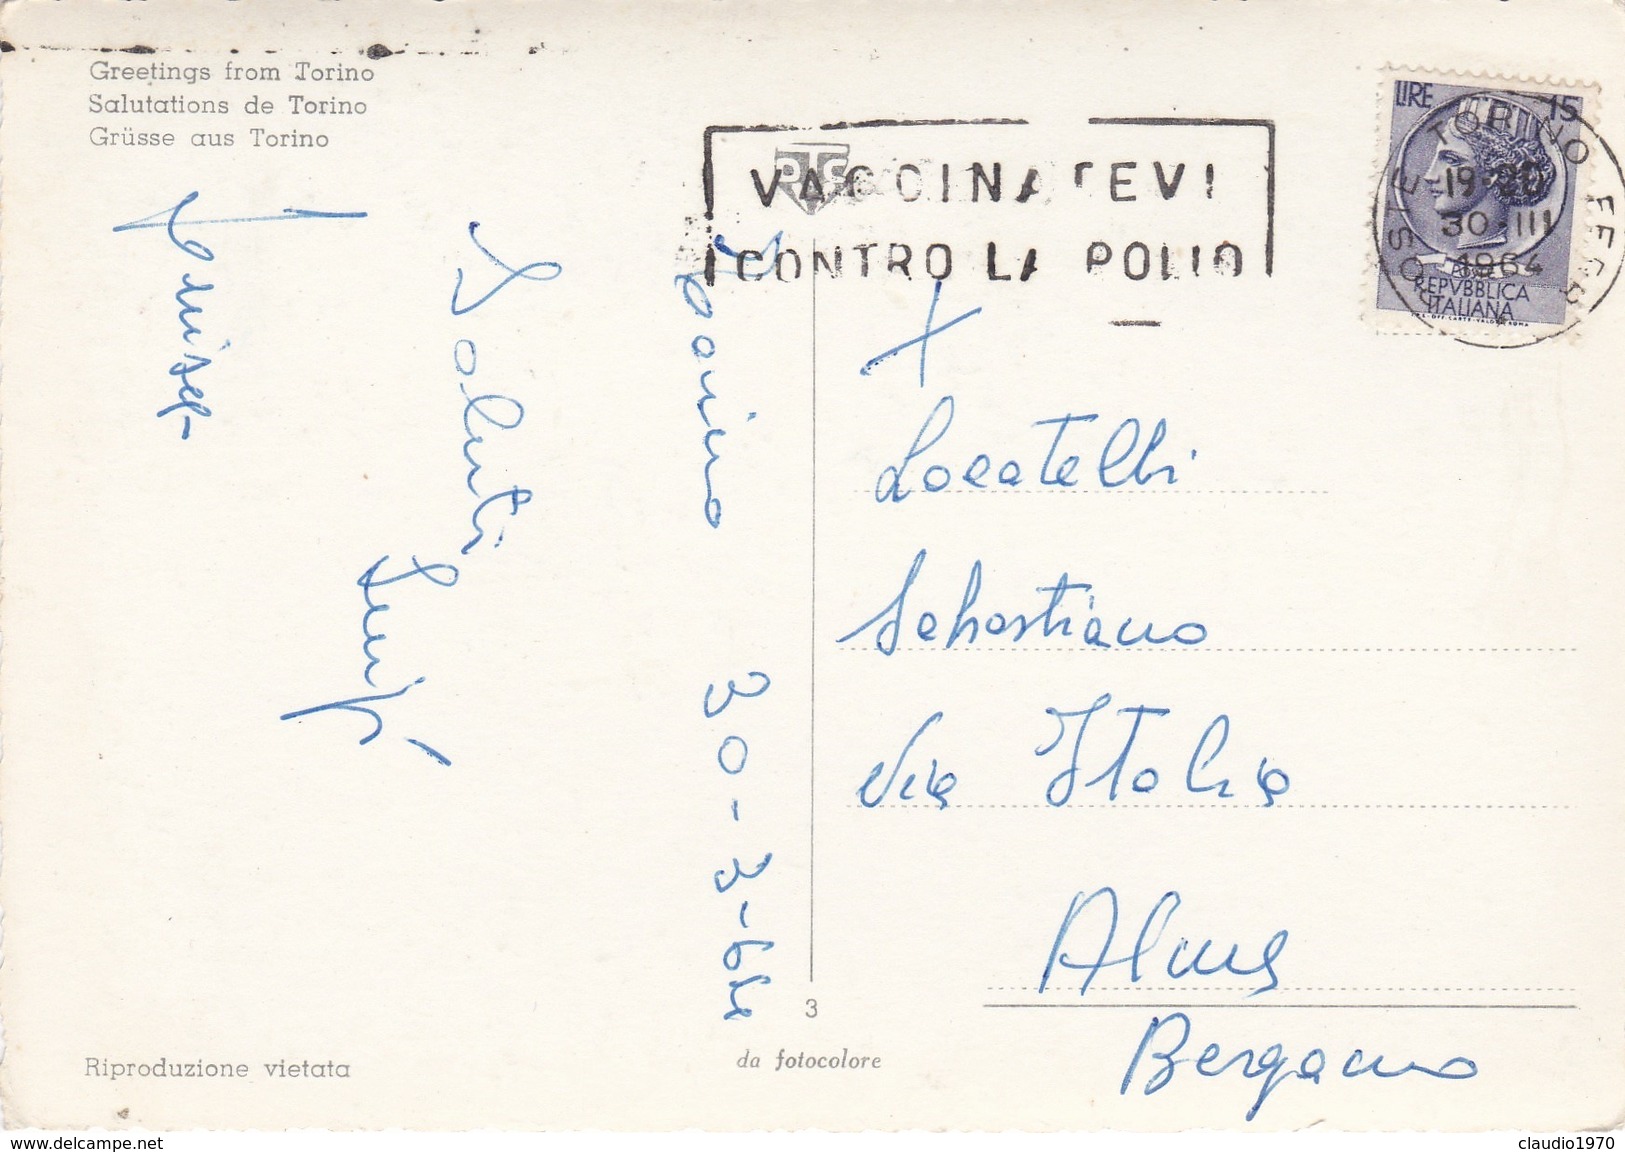 Greetings from Torino
Salutations de Torino
Grüsse aus Torino
VACCINATEVI
CONTRO LA POLIO
LIRE 15
POSTE
REPVBBLICA
ITALIANA
I.P.S.-OFF.CARTE-VALORI-ROMA
TORINO FERR
POSTE
19-20
30·III
1964
Torino 30-3-64
Saluti
Locatelli
Sebastiano
Via Italia
Alme
Bergamo
3
Riproduzione vietata
da fotocolore
www.delcampe.net
claudio1970